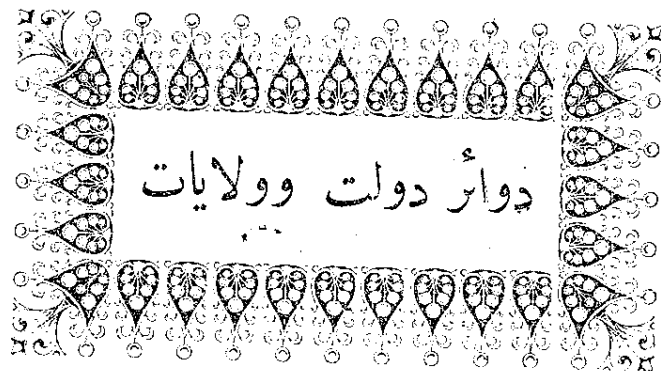 دوائر دولت وولايات